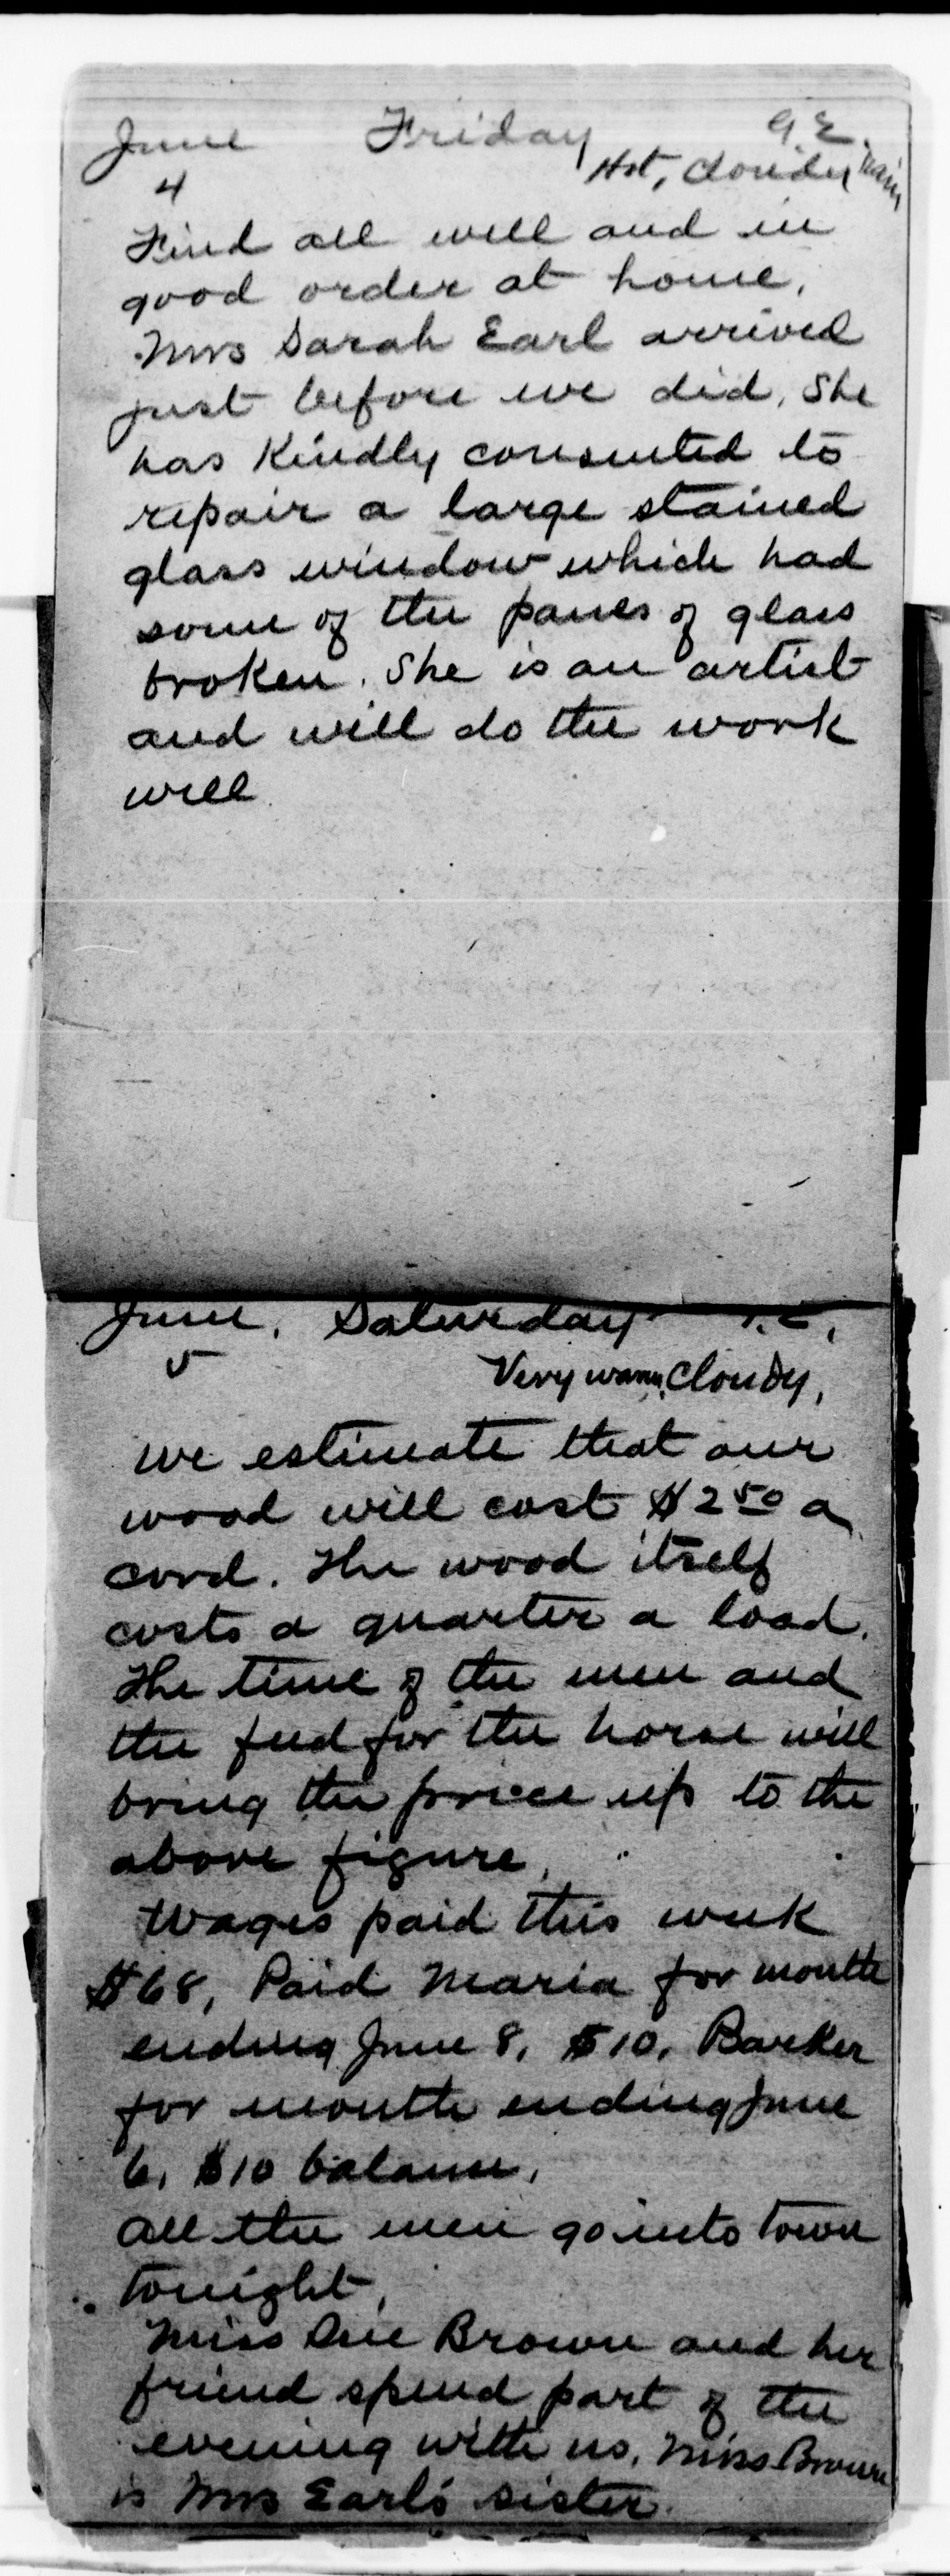 June Friday G.E.
4 Hot, Cloudy rain
Find all well and in
good order at home.
Mrs Sarah Earl arrived
just before we did. She
has kindly consented to
repair a large stained
glass window which had
some of the panes of glass
broken. She is an artist
and will do the work
well
June. Saturday
5 Very warm, Cloudy,
We estimate that our
wood will cost $2 50 a
cord. The wood itself
costs a quarter a load.
The time of the men and
the feed for the horse will
bring the price up to the
above figure.
Wages paid this week
$68, Paid Maria for month
ending June 8, $10, Barker
for month ending June
6, $10 balance,
All the men go into town
tonight,
Miss Sue Brown and her
friend spend part of the
evening with us, Miss Brown
is Mrs Earl's sister.